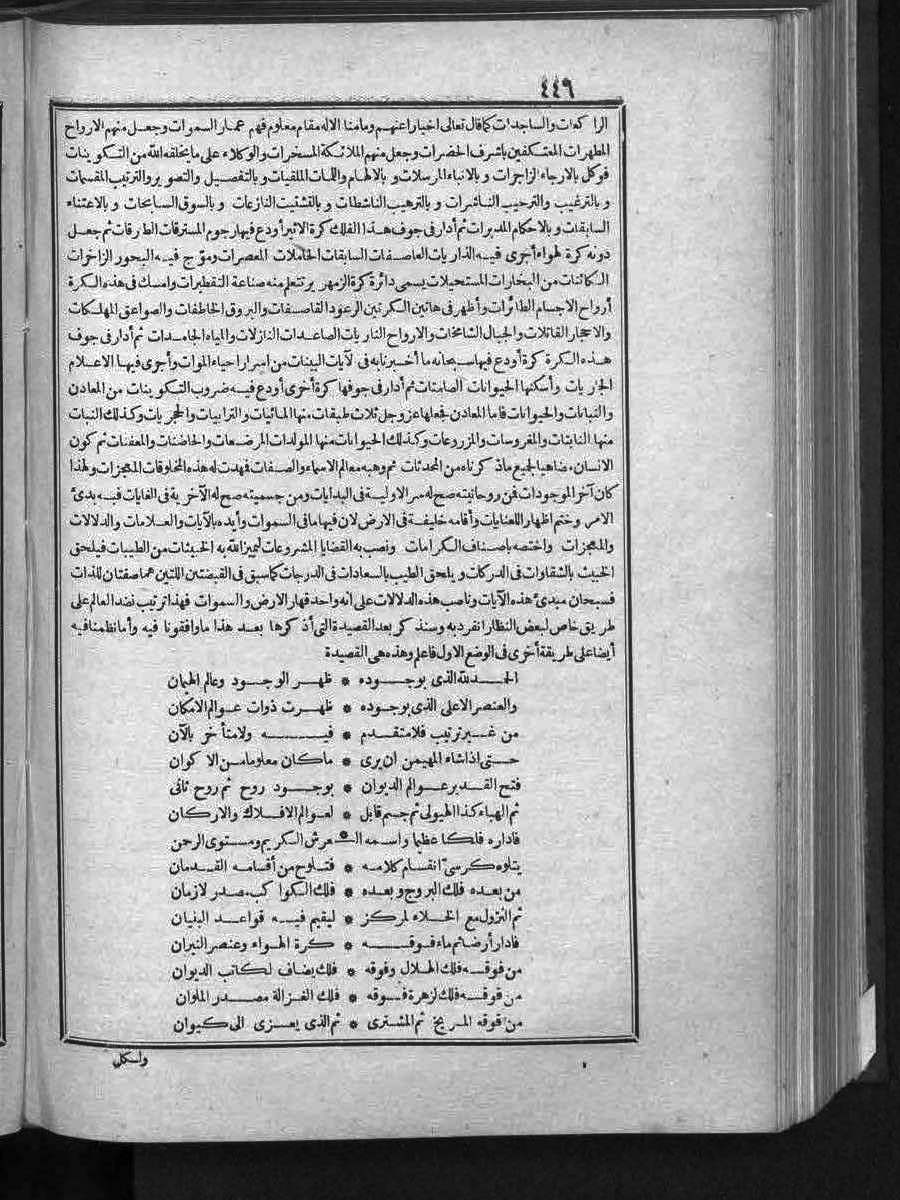 ٤٤٦
الراكعات والساجدات كما قال تعالى اخبارا عنهم وما منا الا له مقام معلوم فهم عمار السموات وجعل منهم الارواح
المطهرات المعتكفين باشرف الحضرات وجعل منهم الملائكة المسخرات والوكلاء على ما يخلقه الله من التكوينات
فوكل بالارجاء الزاجرات وبالانباء المرسلات وبالالهام واللمات الملقيات وبالتفصيل والتصوير والترتيب المقسمات
وبالترغيب والترحيب الناشرات وبالترهيب الناشطات وبالتشتيت النازعات وبالسوق السابحات وبالاعتناء
السابقات وبالاحكام المدبرات ثم أدار فى جوف هذا الفلك كرة الاثير أودع فيها رجوم المسترقات الطارقات ثم جعل
دونه كرة الهواء أجرى فيه الذاريات العاصفات السابقات الحاملات المعصرات ومؤج فيه البحور الزاخرات
الكائنات من البخارات المستحيلات يسمى دائرة كرة الزمهرير تتعلم منه صناعة التقطيرات وامسك فى هذه الكرة
أرواح الاجسام الطائرات وأظهر فى هاتين الكرتين الرعود القاصفات والبروق الخاطفات والصواعق المهلكات
والاحجار القاتلات والجبال الشامخات والارواح الناريات الصاعدات النازلات والمياه الجامدات ثم أدار فى جوف
هذه الكرة كرة أودع فيها سبحانه ما أخبرنا به فى الآيات البينات من اسرار احياء الموات وأجرى فيها الاعلام
الجاريات وأسكنها الحيوانات الصامتات ثم أدار فى جوفها كرة أخرى أودع فيه ضروب التكوينات من المعادن
والنباتات والحيوانات فاما المعادن فجعلها عز وجل ثلاث طبقات منها المائيات والترابيات والحجريات وكذلك النبات
منها النابتات والمغروسات والمزروعات وكذلك الحيوانات منها المولدات المرضعات والحاضنات والمعفنات ثم كون
الانسان مضاهيا لجميع ما ذكرناه من المحدثات ثم وهبه معالم الاسماء والصفات فمهدت له هذه المخلوقات المعجزات ولهذا
كان آخر الموجودات فمن روحانيته صح له سر الاولية فى البدايات ومن جسميته صح له الآخرية فى الغايات فبه بدئ
الامر وختم اظهارا للعنايات وأقامه خليفة فى الارض لان فيها ما فى السموات وأيده بالآيات والعلامات والدلالات
والمعجزات واختصه باصناف الكرامات ونصب به القضايا المشروعات ليميز الله به الخبيثات من الطيبات فيلحق
الخبيث بالشقاوات فى الدركات ويلحق الطيب بالسعادات فى الدرجات كما سبق فى القبضتين اللتين هما صفتان للذات
فسبحان مبدئ هذه الآيات وناصب هذه الدلالات على انه واحد قهار الارض والسموات فهذا ترتيب نضد العالم على
طريق خاص لبعض النظار انفرد به وسنذكر بعد القصيدة التى أذكرها بعد هذا ما وافقونا فيه وأما نظمنا فيه
أيضا على طريقة أخرى فى الوضع الاول فاعلم وهذه هى القصيدة
الحمد لله الذى بوجوده * ظهر الوجود وعالم الهيمان
والعنصر الاعلى الذى بوجوده * ظهرت ذوات عوالم الامكان
من غير ترتيب فلا متقدم * فيه ولا متأخر بالآن
حتى اذا شاء المهيمن ان يرى * ما كان معلوما من الاكوان
فتح القدير عوالم الديوان * بوجود روح ثم روح ثانى
ثم الهباء كذا الهيولى ثم جسم قابل * لعوالم الافلاك والاركان
فاداره فلكا عظيما واسمه الـ * ـعرش الكريم ومستوى الرحمن
يتلوه كرسىّ انقسام كلامه * فتلوح من أقسامه القدمان
من بعده فلك البروج وبعده * فلك الكواكب مصدر لازمان
ثم النزول مع الخلاء لمركز * ليقيم فيه قواعد البنيان
فادار أرضا ثم ماء فوقه * كرة الهواء وعنصر النيران
من فوقه فلك الهلال وفوقه * فلك يضاف لكاتب الديوان
من فوقه فلك لزهرة فوقه * فلك الغزالة مصدر الملوان
من فوقه المريخ ثم المشترى * ثم الذى يعزى الى كيوان
ولكل